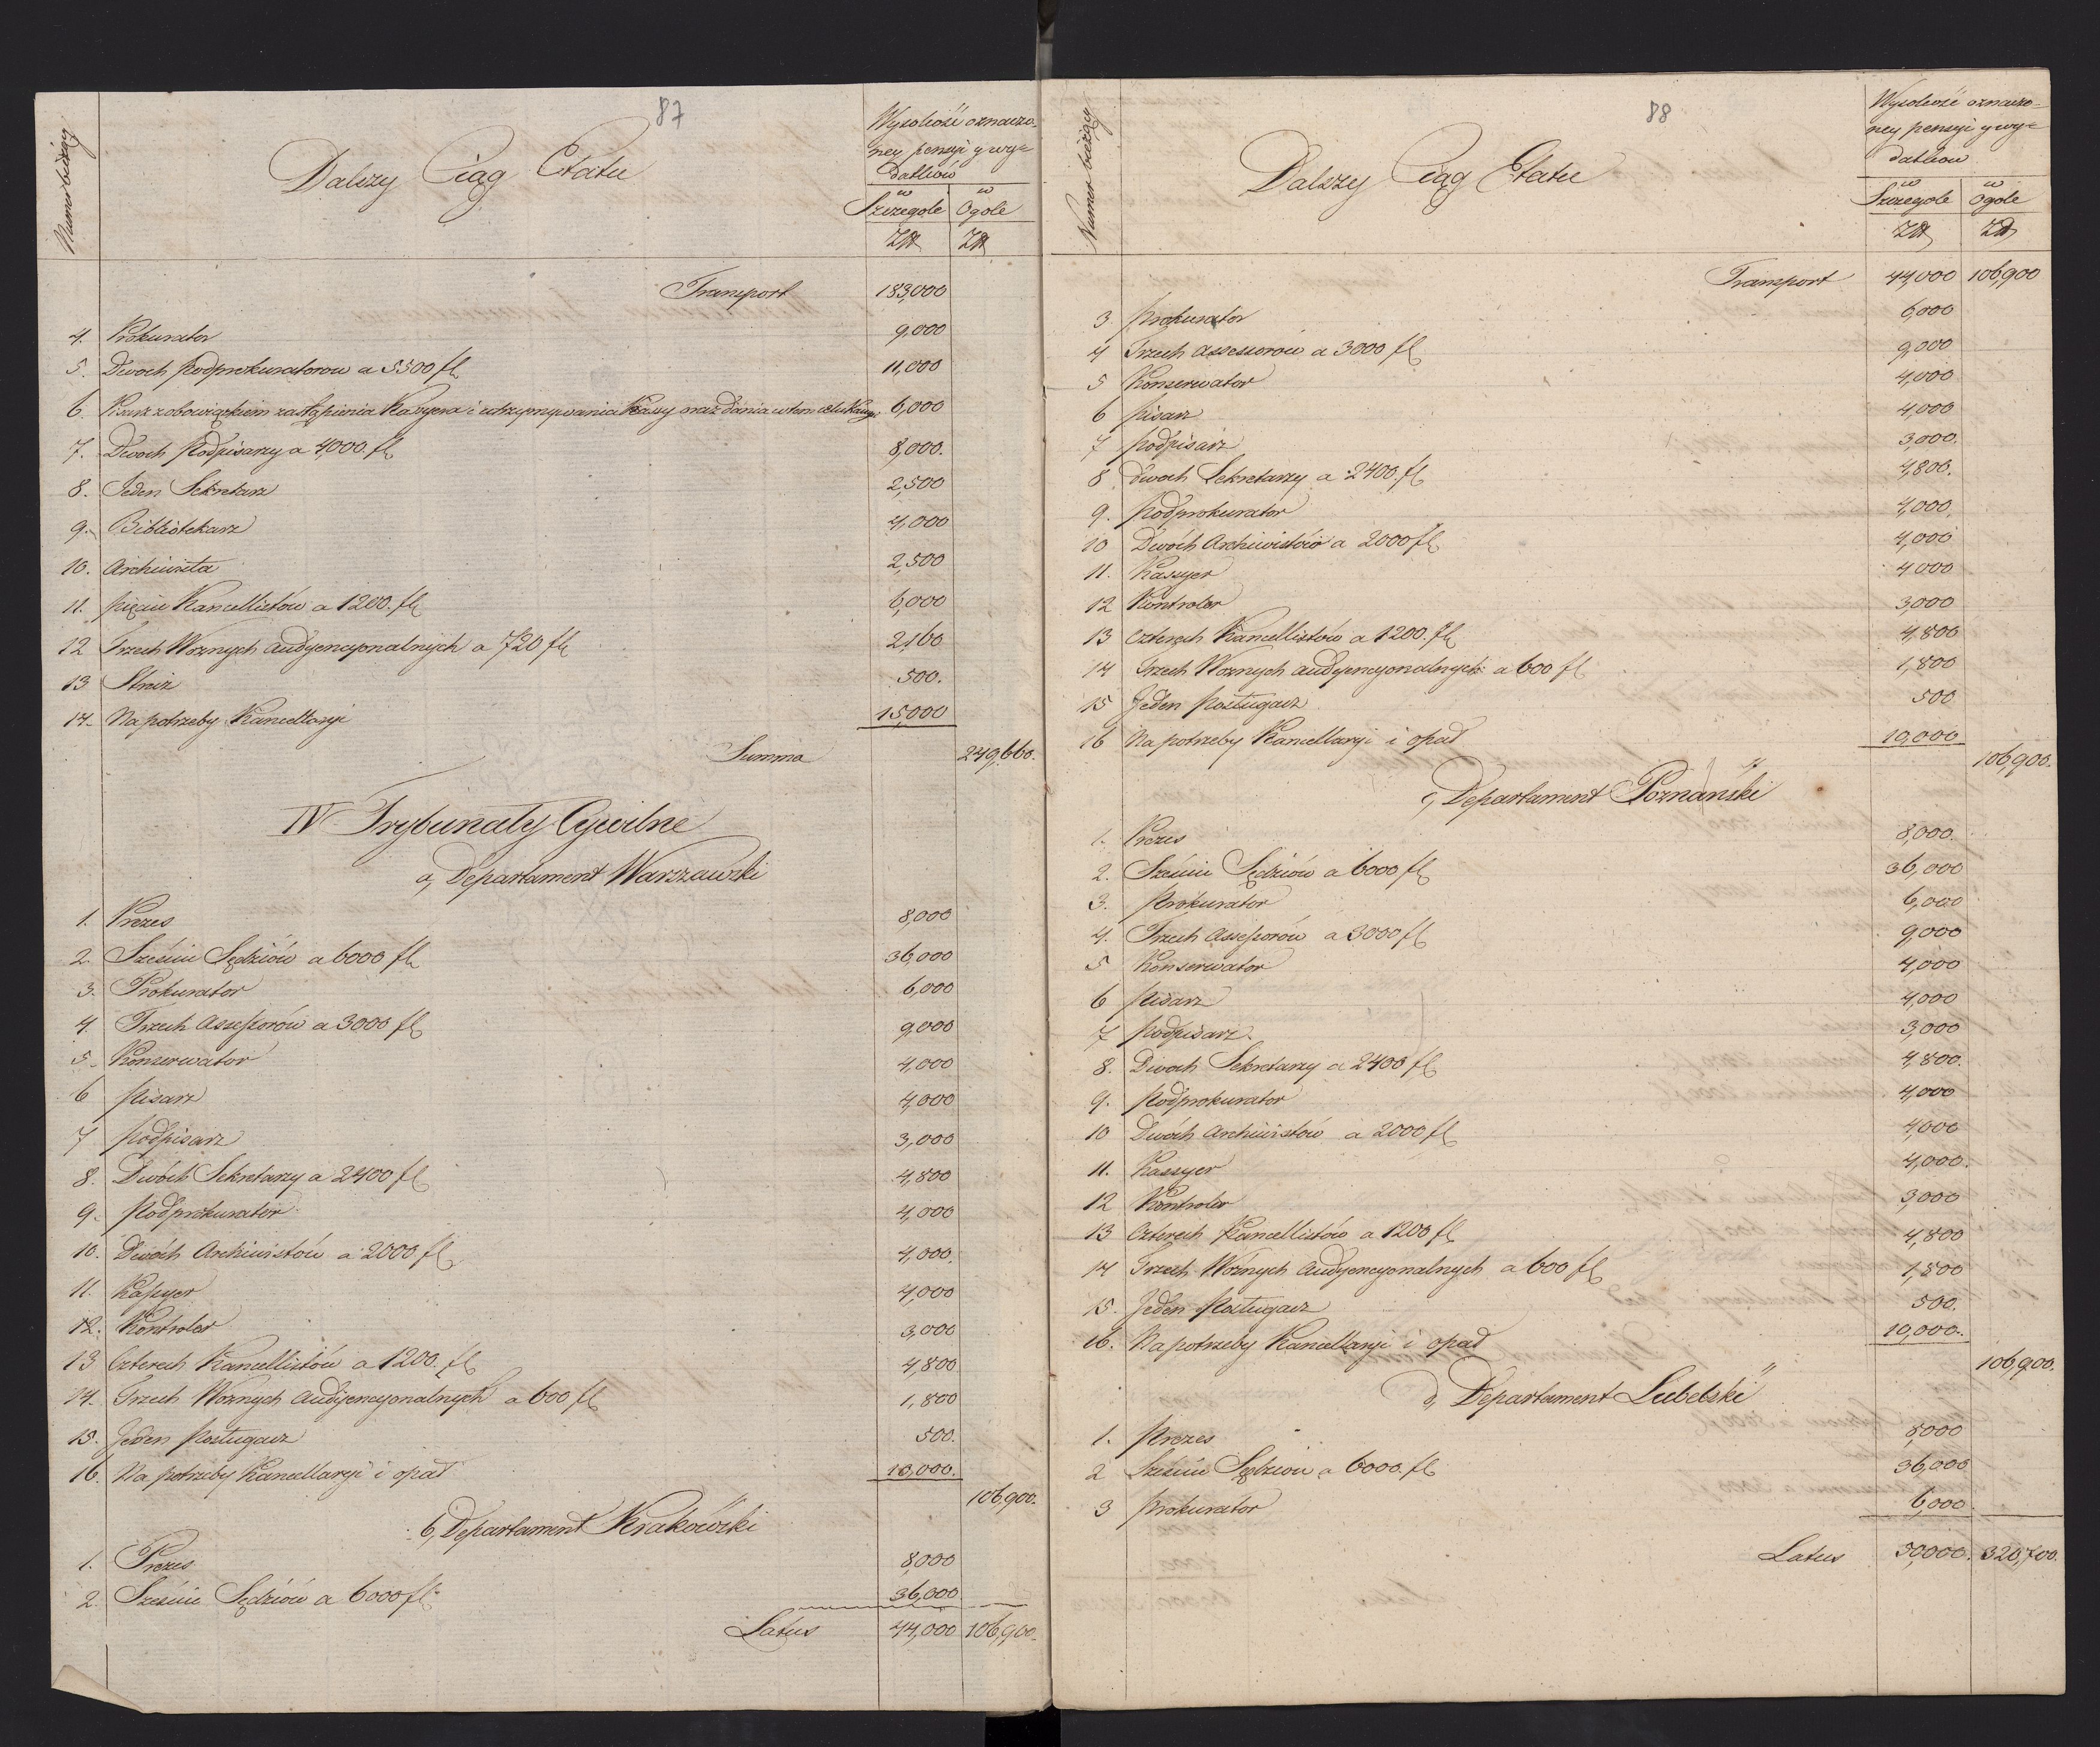 87
Numer bieżący
Dalszy Ciąg Etatu
Wysokość oznaczo-
ney pensyi y wy=
datków
w Szczegole
w Ogole
Transport 183,000
4. Prokurator 9,000
5. Dwoch Podprokuratorow a 5500 fl 11,000
6. Pisarz z obowiązkiem zastąpienia Kassyera i utrzymywania Kassy oraz dania w tem celu Kaucyi 6,000
7. Dwoch Podpisarzy a 4,000. fl 8,000.
8. Jeden Sekretarz 2,500
9. Bibliotekarz 4,000
10. Archiwista 2,500
11. Pięciu Kancellistów a 1200. fl 6,000
12 Trzech Woznych Audyencyonalnych a 720 fl 2,160
13 Stróz 500.
14. Na potrzeby Kancellaryi 15,000
Summa 249,660.
IV Trybunały Cywilne
a, Departament Warszawski
1. Prezes 8,000
2. Sześciu Sędziów a 6000 fl 36,000
3. Prokurator 6,000
4. Trzech Assessorów a 3000 fl 9,000
5. Konserwator 4,000
6 Pisarz 4,000
7 Podpisarz 3,000
8. Dwóch Sekretarzy a 2400 fl 4,800
9. Podprokurator 4,000
10. Dwóch Archiwistów a 2000 fl 4,000.
11. Kassyer 4,000
12. Kontroler 3,000
13 Czterech Kancellistów a 1200. fl 4,800
14. Trzech Woznych Audyencyonalnych a 600 fl 1,800
15. Jeden Posługacz 500.
16. Na potrzeby Kancellaryi i opał 10,000.
106,900.
b, Departament Krakowski
1. Prezes 8,000
2. Sześciu Sędziów a 6000 fl 36,000
Latus 44,000 106,900.
88
Numer bieżący
Dalszy Ciąg Etatu
Wysokość oznaczo-
ney pensyi y wy=
datkow
w Szczegole
w Ogole
Transport 44,000 106,900
3. Prokurator 6,000
4 Trzech Assessorow a 3000 fl 9,000
5 Konserwator 4,000
6 Pisarz 4,000
7 Podpisarz 3,000.
8 Dwoch Sekretarzy a 2400. fl 4,800.
9. Podprokurator 4,000.
10 Dwóch Archiwistów a 2000 fl 4,000
11. Kassyer 4000
12 Kontroler 3,000
13 Czterech Kancellistów a 1200. fl 4,800
14 Trzech Woznych Audyencyonalnych a 600 fl 1,800
15 Jeden Posługacz 500
16 Na potrzeby Kancellaryi i opał 10,000
106,900.
c, Departament Poznański
1. Prezes 8,000.
2. Sześciu Sędziów a 6000 fl 36,000
3. Prokurator 6,000
4. Trzech Assessorów a 3000 fl 9,000
5 Konserwator 4,000
6 Pisarz 4,000
7 Podpisarz. 3,000
8. Dwoch Sekretarzy a 2400 fl 4,800.
9. Podprokurator 4,000
10 Dwóch Archiwistów a 2000 fl 4,000
11. Kassyer 4,000.
12 Kontroler 3,000
13 Czterech Kancellistów a 1200 fl 4,800
14 Trzech Woznych Audyencyonalnych a 600 fl 1,800
15. Jeden Posługacz 500.
16. Na potrzeby Kancellaryi i opał 10,000.
106,900.
d, Departament Lubelski
1. Prezes 8,000
2 Sześciu Sędziow a 6000. fl 36,000
3 Prokurator 6,000.
Latus 50,000. 320,700.